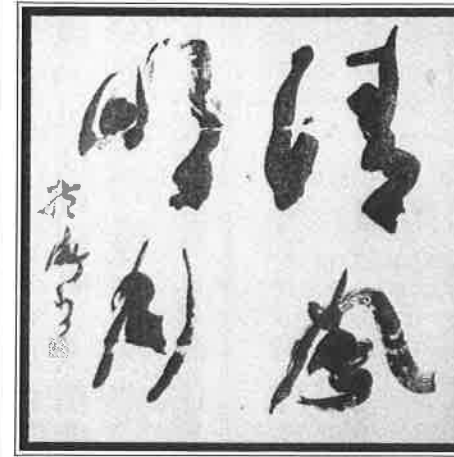 清風
明月